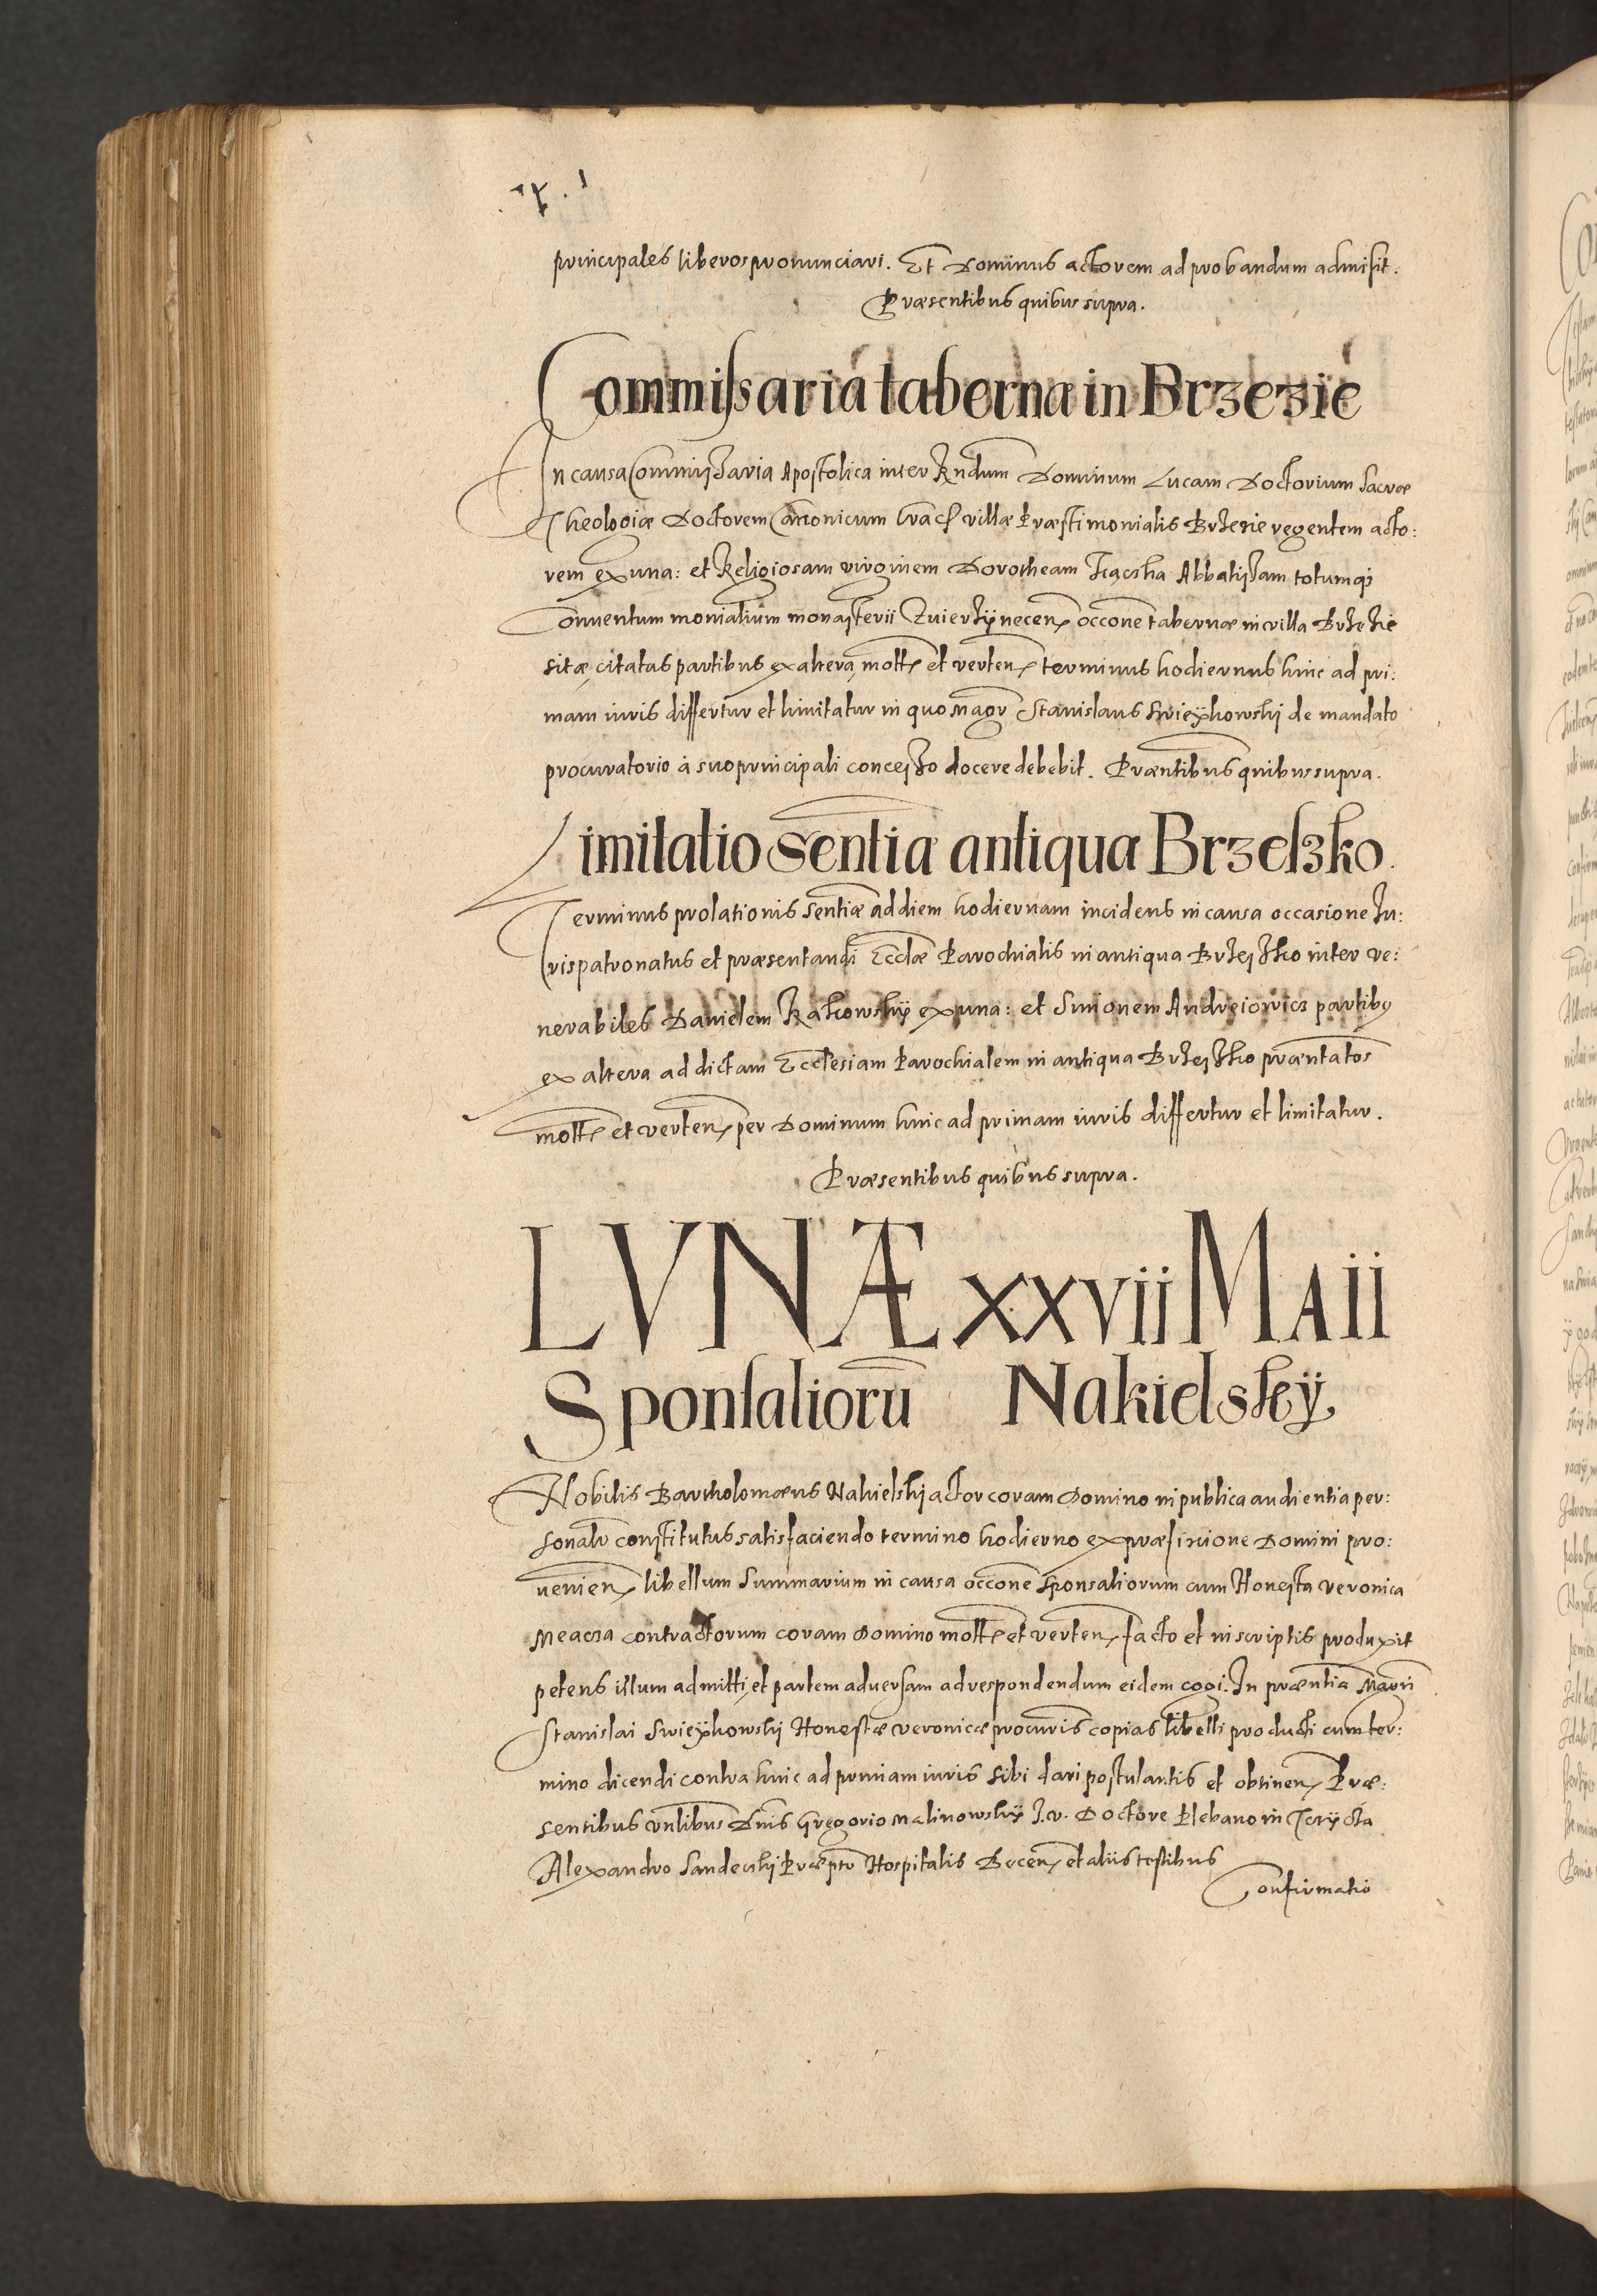 principales liberos pronunciari. Et Dominus actorem ad probandum admisit.
Præsentibus quibus supra.
Commissaria taberna in Brzezie
In causa Commissaria Apostolica inter Rndum Dominum Lucam Doctorium Sacræ
Theologiæ Doctorem Canonicum villæ Præstimonialis Brzezie regentem acto:
rem ex una: et Religiosam virginem Dorotheam Abbatissam totumq;
Conuentum monialium monasterii Zwierzÿnecen occone tabernæ in villa Brzezie
sitæ, citatas partibus ex altera, mott et verten terminus hodiernus hinc ad pri:
mam iuris differtur et limitatur in quo Magr Stanislaus Swieÿkowski de mandato
procuratorio à suo principali concesso docere debebit. Præntibus quibus supra.
Limitatio Sentia antiqua Brzesko.
Terminus prolationis sentiæ ad diem hodiernam incidens in causa occasione Iu:
rispatronatus et præsentandi Eccliæ Parochialis in antiqua Brzesko inter ve:
nerabiles Danielem Rakowskÿ ex una: et Simonem Andreiowicz partibus
ex altera ad dictam Ecclesiam Parochialem in antiqua Brzesko præntatos
mott et verten per Dominum hinc ad primam iuris differtur et limitatur.
Præsentibus quibus supra.
LVNÆ XXVII MAII
Sponsalioru Nakielskÿ
Nobilis Bartholomæus Nakielski actor coram Domino in publica audientia per:
sonalr constitutus satisfaciendo termino hodierno ex præfixione Domini pro:
uenien libellum summarium in causa occone sponsaliorum cum Honesta Veronica
contractorum coram Domino mott et verten facto et in scriptis produxit
petens illum admitti, et partem aduersam ad respondendum eidem cogi. In præntia Magri
Stanislai Swieÿkowski Honestæ Veronicæ procuris copias libelli producti cum ter:
mino dicendi contra hinc ad primam iuris sibi dari postulantis et obtinen Præ:
sentibus Dnis Gregorio Malinowskÿ I. v. Doctore Plebano in
Alexandro Sandecki Hospitalis et aliis testibus
Confirmatio